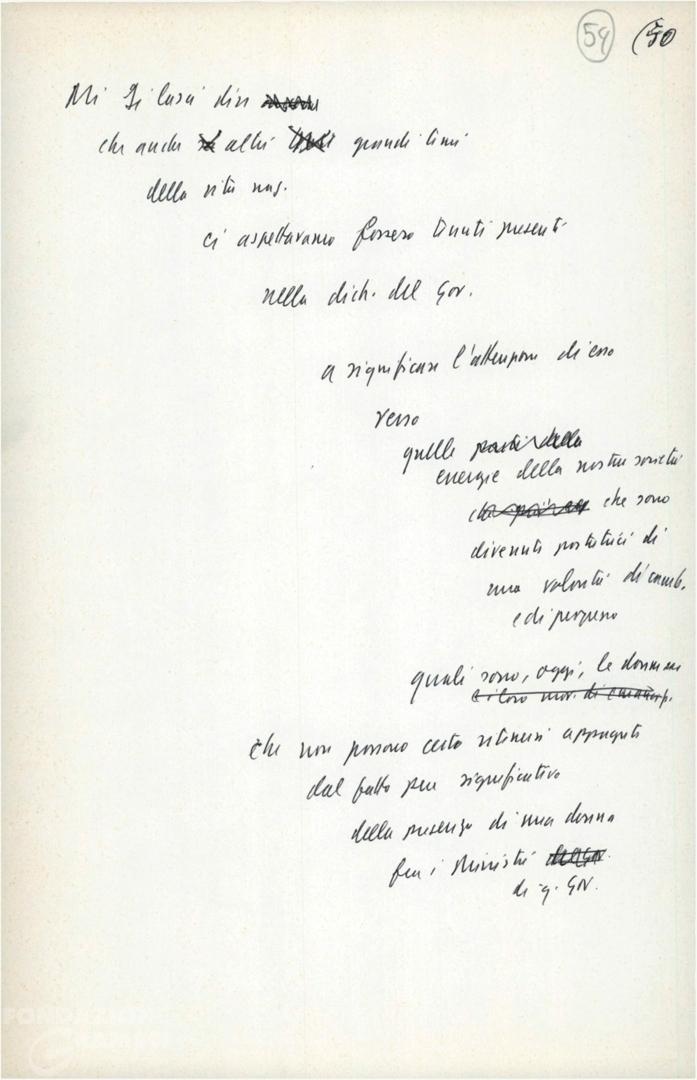 59 50
Mi si lasci dire
che anche altri grandi temi
della vita naz.
ci aspettavamo fossero tenuti presenti
nella dich. del Gov.
a significare l'attenzione di esso
verso
quelle parti della
energie della nostra società
che sono
divenute portatrici di
una volontà di camb.
e di progresso
quali sono, oggi, le donne
e il loro mov. di emancip.
che non possono certo ritenersi appagate
dal fatto pur significativo
della presenza di una donna
fra i Ministri del Gov.
di q. Gov.
FONDAZIONE
GRAMSCI